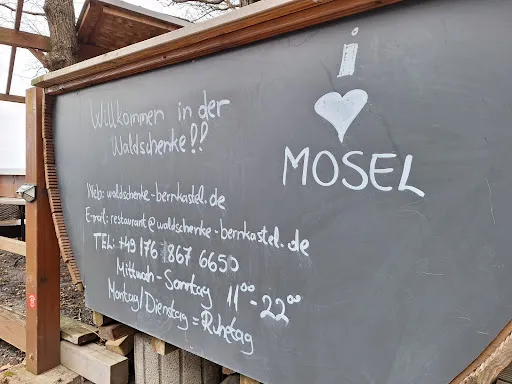 Willkommen in der
Waldschenke!!
Web: waldschenke-bernkastel.de
E-mail: restaurant@waldschenke-bernkastel.de
TEL: +49 176 867 6650
Mittwoch - Sonntag 11⁰⁰ - 22⁰⁰
Montag/Dienstag = Ruhetag
i
♥
MOSEL